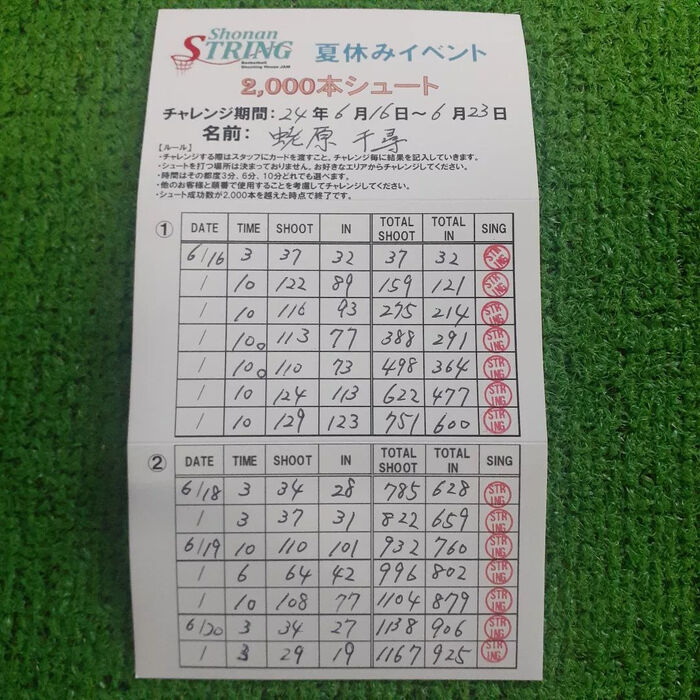 Shonan
STRING
Basketball
Shooting House JAM
夏休みイベント
2,000本シュート
チャレンジ期間：24年6月16日～6月23日
名前： 蛯原 千尋
【ルール】
・チャレンジする際はスタッフにカードを渡すこと。チャレンジ毎に結果を記入していきます。
・シュートを打つ場所は決まっておりません。お好きなエリアからチャレンジしてください。
・時間はその都度3分、6分、10分どれでも選べます。
・他のお客様と順番で使用することを考慮してチャレンジしてください。
・シュート成功数が2,000本を越えた時点で終了です。
① DATE TIME SHOOT IN TOTAL SHOOT TOTAL IN SING
6/16 3 37 32 37 32 STRING
/ 10 122 89 159 121 STRING
/ 10 116 93 275 214 STRING
/ 10。 113 77 388 291 STRING
/ 10。 110 73 498 364 STRING
/ 10 124 113 622 477 STRING
/ 10 129 123 751 600 STRING
② DATE TIME SHOOT IN TOTAL SHOOT TOTAL IN SING
6/18 3 34 28 785 628 STRING
/ 3 37 31 822 659 STRING
6/19 10 110 101 932 760 STRING
/ 6 64 42 996 802 STRING
/ 10 108 77 1104 879 STRING
6/20 3 34 27 1138 906 STRING
/ 3 29 19 1167 925 STRING